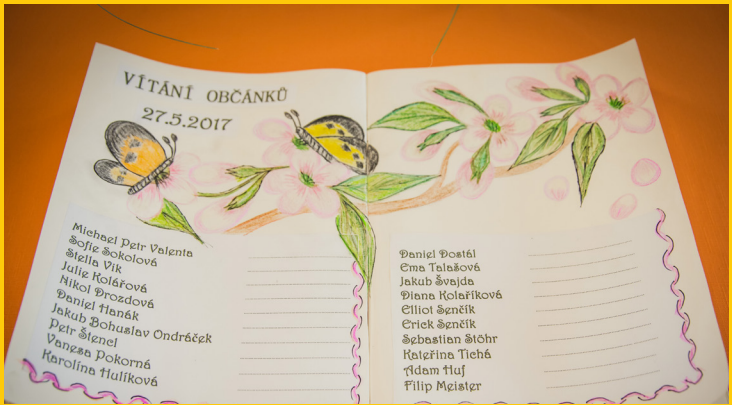 VÍTÁNÍ OBČÁNKŮ
27.5.2017
Michael Petr Valenta
Sofie Sokolová
Stella Vik
Julie Kolářová
Nikol Drozdová
Daniel Hanák
Jakub Bohuslav Ondráček
Petr Štencl
Vanesa Pokorná
Karolína Hulíková
Daniel Dostál
Ema Talašová
Jakub Švajda
Diana Kolaříková
Elliot Senčík
Erick Senčík
Sebastian Stöhr
Kateřina Tichá
Adam Huf
Filip Meister